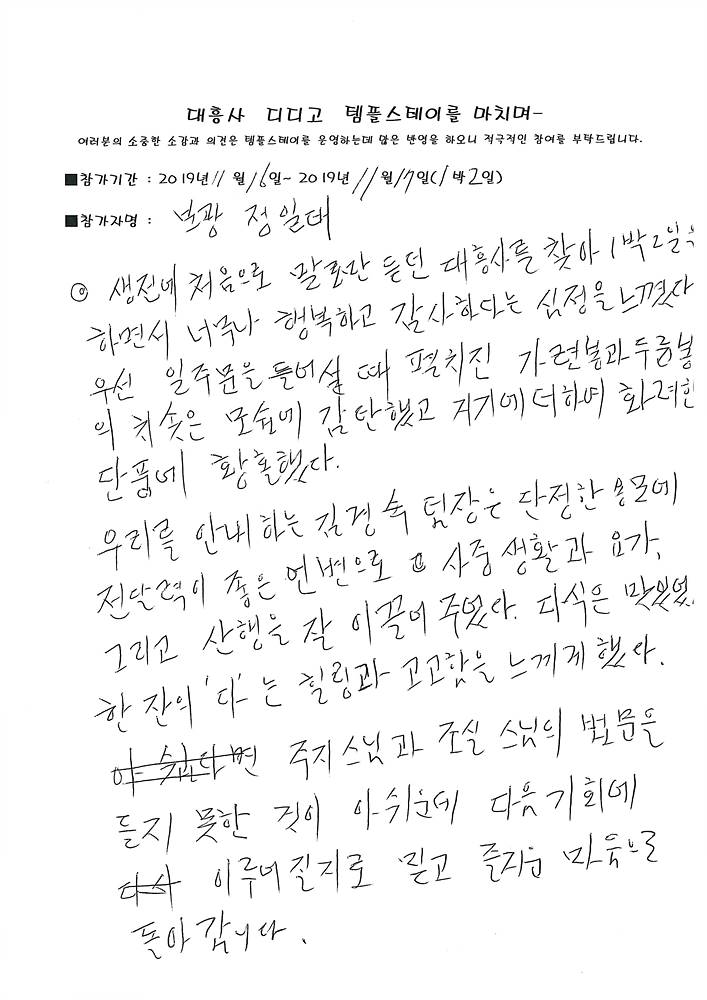 대흥사 디디고 템플스테이를 마치며-
여러분의 소중한 소감과 의견은 템플스테이를 운영하는데 많은 반영을 하오니 적극적인 참여를 부탁드립니다.
■참가기간 : 2019년 11월 16일~ 2019년 11월 17일(1박2일)
■참가자명 : 보광 정일태
◎ 생전에 처음으로 말로만 듣던 대흥사를 찾아 1박2일을
하면서 너무나 행복하고 감사하다는 심정을 느꼈다
우선 일주문을 들어설 때 펼치진 가련봉과 두륜봉
의 치솟은 모습에 감탄했고 거기에 더하여 화려한
단풍에 황홀했다.
우리를 안내하는 김경숙 팀장은 단정한 용모에
전달력이 좋은 언변으로 사중생활과 요가,
그리고 산행을 잘 이끌어 주었다. 다식은 맛있었
한 잔의 '다'는 힐링과 고고함을 느끼게 했다.
아쉽다면 주지스님과 조실 스님의 법문을
듣지 못한 것이 아쉬운데 다음 기회에
다시 이루어질지로 믿고 즐거운 마음으로
돌아갑니다.